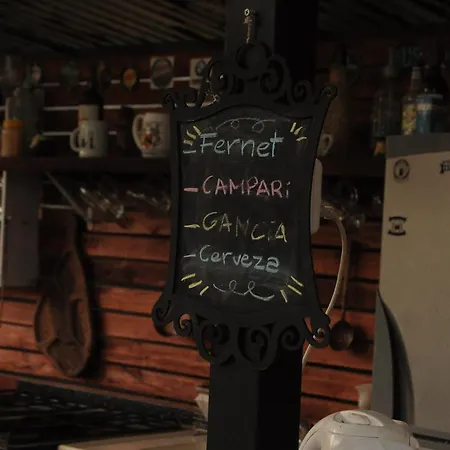 - Fernet
- CAMPARi
- GANCIA
- Cerveza